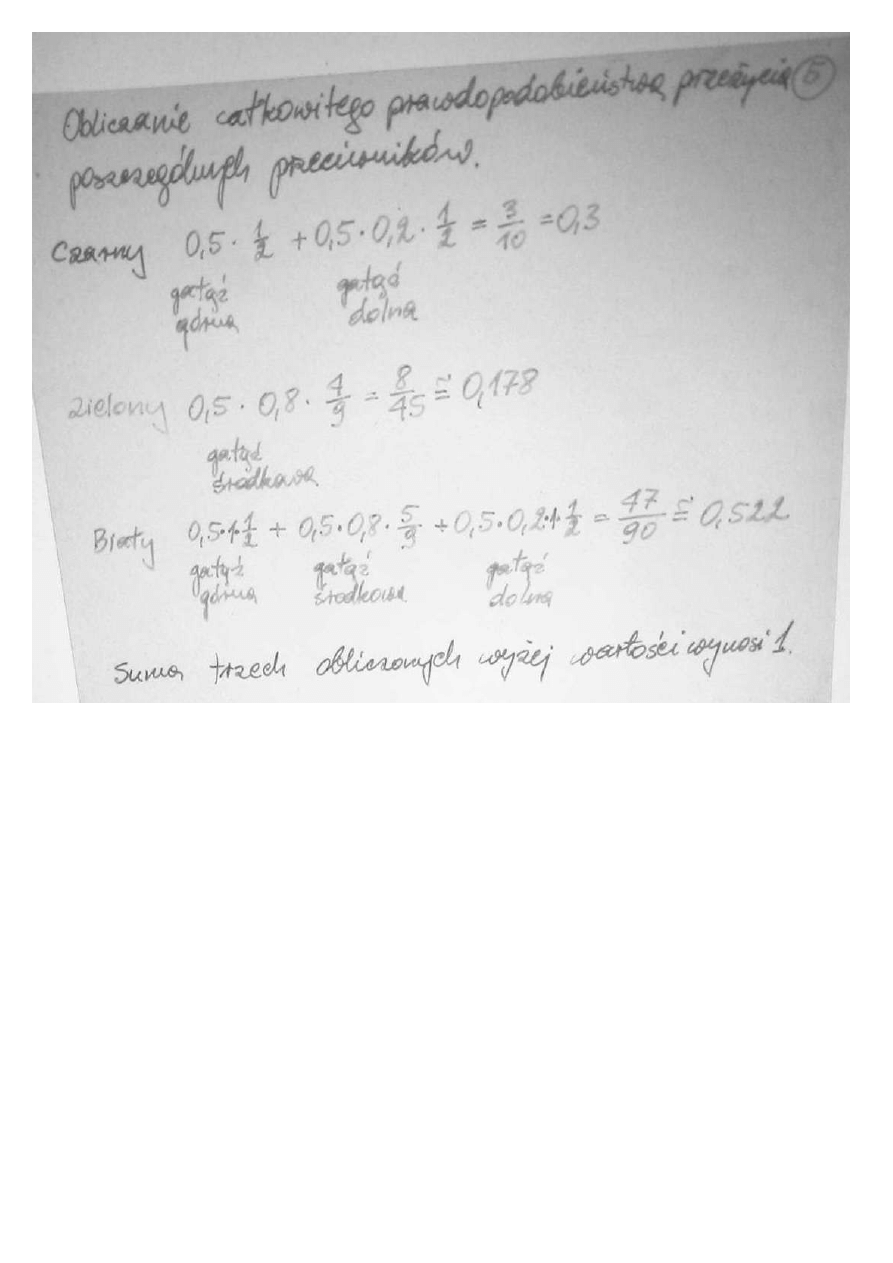 Obliczanie całkowitego prawdopodobieństwa przeżycia 5
poszczególnych przeciwników.
Czarny 0,5 · 1/2 + 0,5 · 0,2 · 1/2 = 3/10 = 0,3
gałąź górna gałąź dolna
Zielony 0,5 · 0,8 · 4/9 = 8/45 ≅ 0,178
gałąź środkowa
Biały 0,5 · 1 · 1/2 + 0,5 · 0,8 · 5/9 + 0,5 · 0,2 · 1 · 1/2 = 47/90 ≅ 0,522
gałąź górna gałąź środkowa gałąź dolna
Suma trzech obliczonych wyżej wartości wynosi 1.